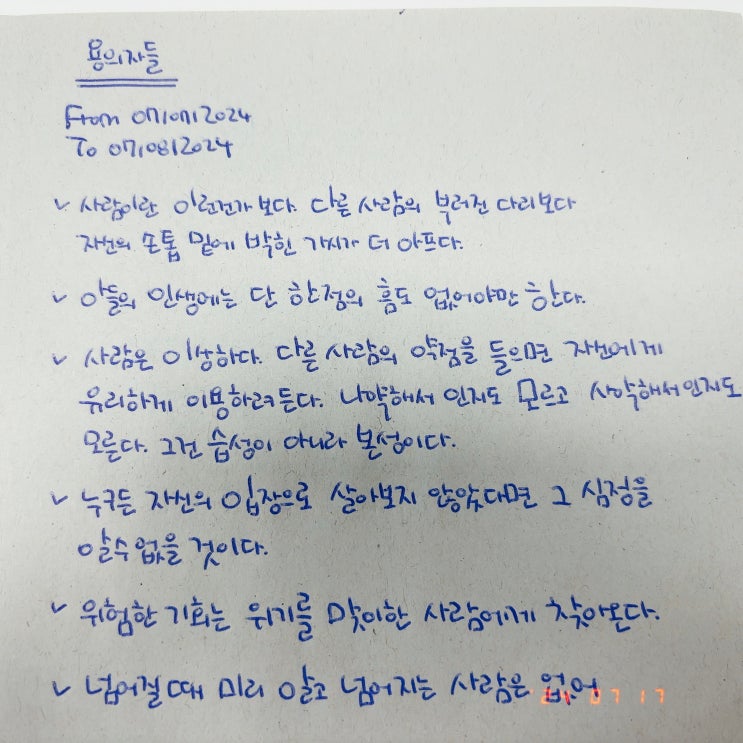 용의자들
From 07/07/2024
To 07/08/2024
✓ 사람이란 이런건가 보다. 다른 사람의 부러진 다리보다
자신의 손톱 밑에 박힌 가시가 더 아프다.
✓ 아들의 인생에는 단 한점의 흠도 없어야만 한다.
✓ 사람은 이상하다. 다른 사람의 약점을 들으면 자신에게
유리하게 이용하려 든다. 나약해서 인지도 모르고 사악해서인지도
모른다. 그건 습성이 아니라 본성이다.
✓ 누구든 자신의 입장으로 살아보지 않았다면 그 심정을
알수 없을 것이다.
✓ 위험한 기회는 위기를 맞이한 사람에게 찾아온다.
✓ 넘어질때 미리 알고 넘어지는 사람은 없어
'24 07 17